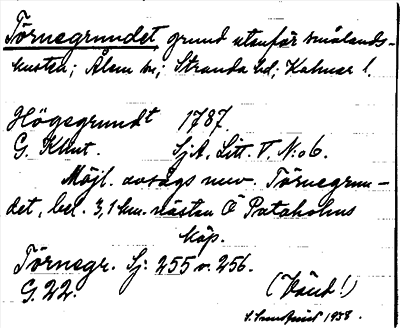 Törnegrundet, grund utanför smålands-
kusten; Ålem sn; Stranda hd; Kalmar l.
Högsgrundt 1787
G. Klint. SjA, Litt. V, N:o 6.
Möjl. avsågs nuv. Törnegrun-
det, bel. 3,1 km. nästan Ö Pataholms
köp.
Törnegr. Sj: 255 o. 256.
G. 22. (Vänd!)
1938